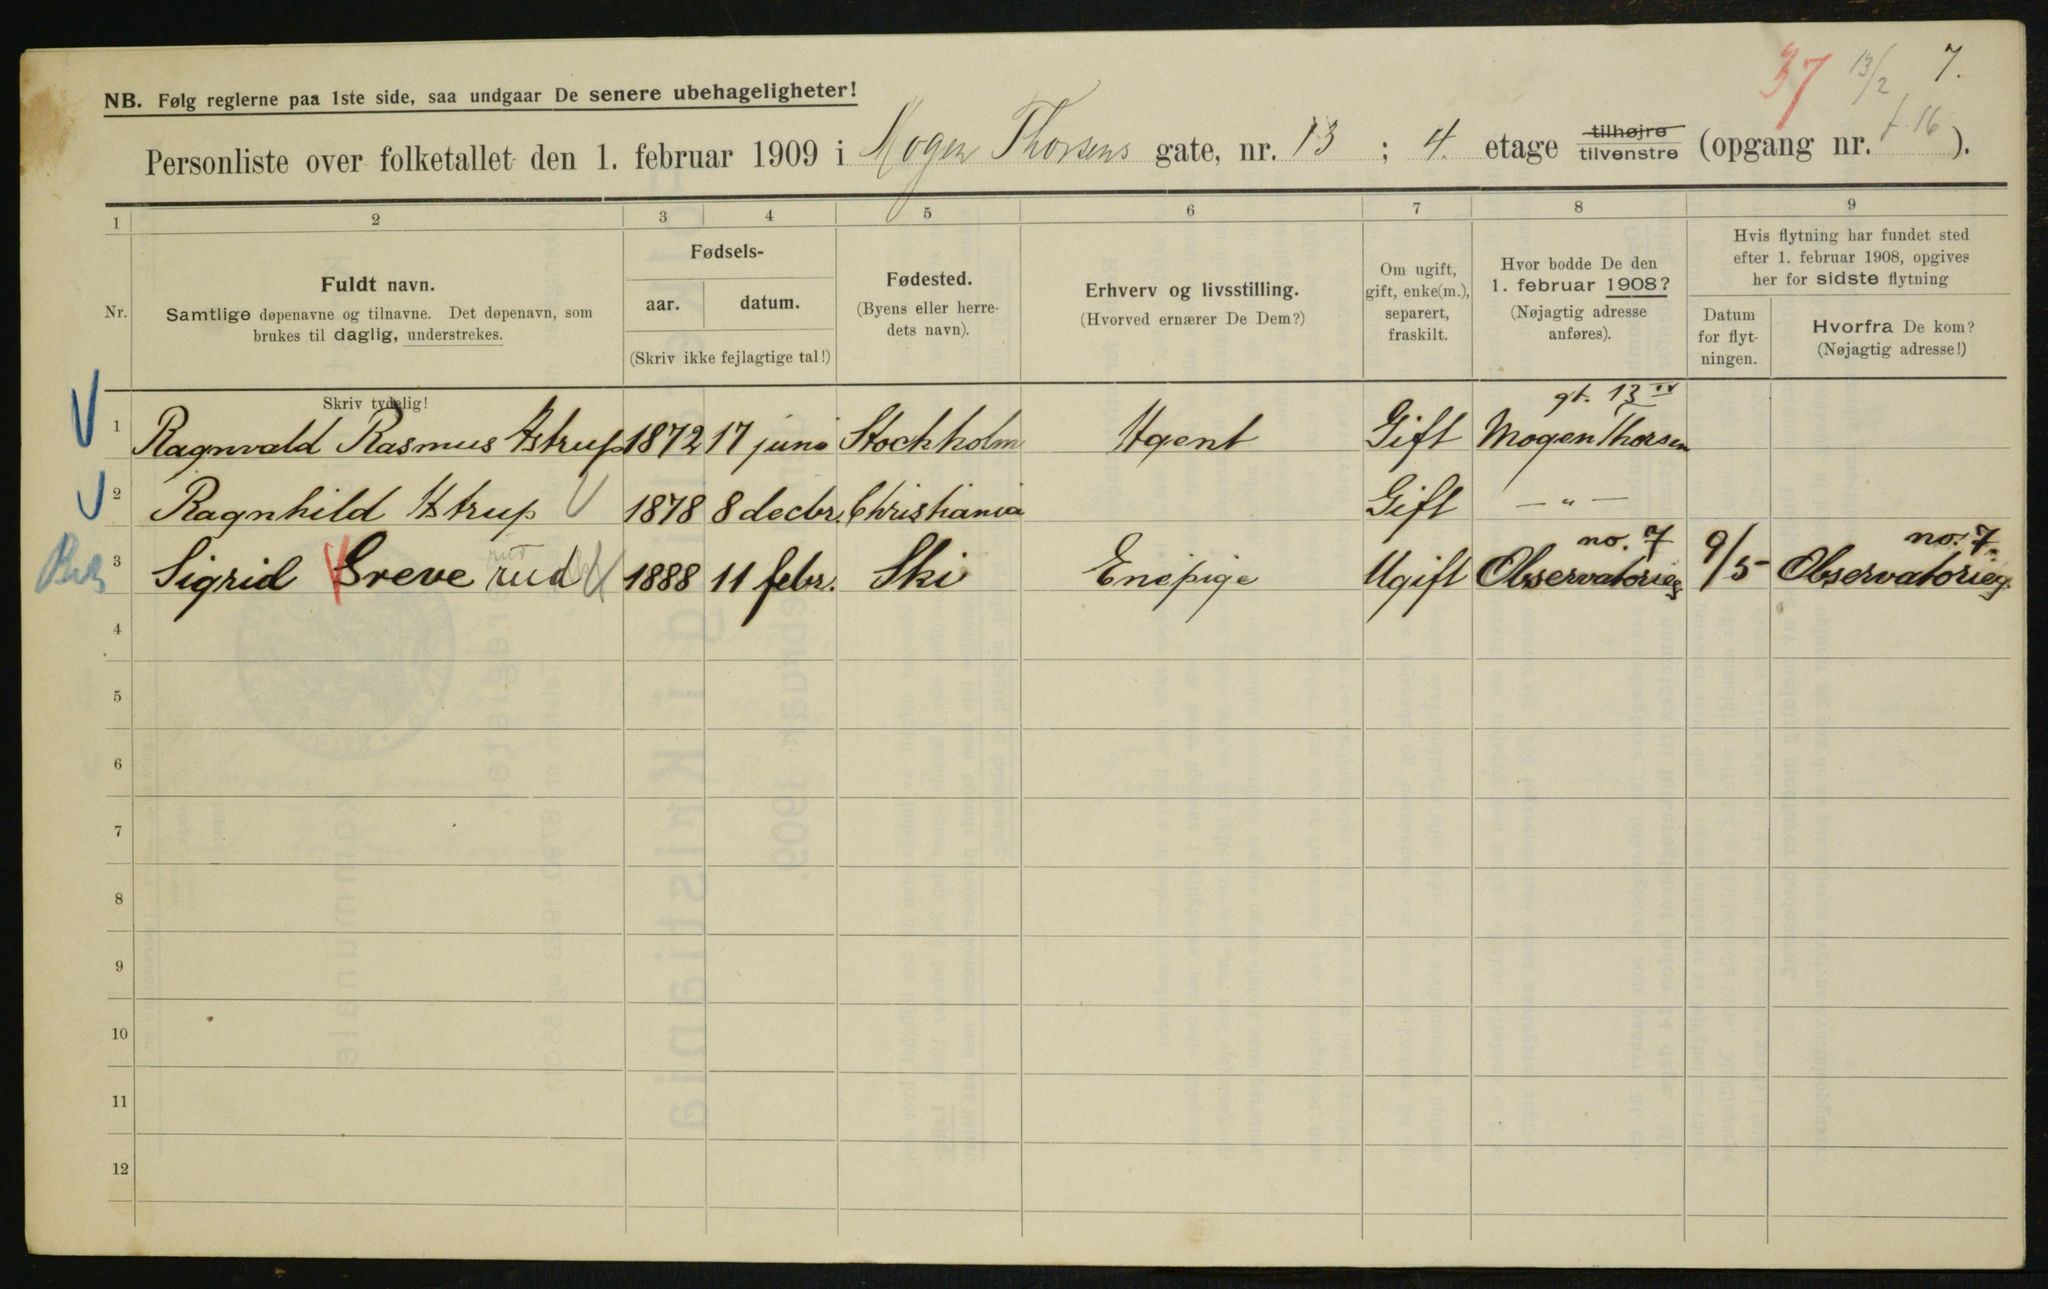 37 13/2 7.
NB. Følg reglerne paa 1ste side, saa undgaar De senere ubehageligheter!
Personliste over folketallet den 1. februar 1909 i Mogen Thorsens gate, nr. 13 ; 4. etage tilhøjre tilvenstre (opgang nr. f. 16 ).
1 2 3 4 5 6 7 8 9
Nr.
Fuldt navn.
Samtlige døpenavne og tilnavne. Det døpenavn, som
brukes til daglig, understrekes.
Fødsels-
aar. datum.
(Skriv ikke fejlagtige tal!)
Fødested.
(Byens eller herre-
dets navn).
Erhverv og livsstilling.
(Hvorved ernærer De Dem?)
Om ugift,
gift, enke(m.),
separert,
fraskilt.
Hvor bodde De den
1. februar 1908?
(Nøjagtig adresse
anføres).
Hvis flytning har fundet sted
efter 1. februar 1908, opgives
her for sidste flytning
Datum
for flyt-
ningen.
Hvorfra De kom?
(Nøjagtig adresse!)
Skriv tydelig!
gt. 13 IV
1 Ragnvald Rasmus Astrup 1872 17 juni Stockholm Agent Gift Mogen Thorsen
2 Ragnhild Astrup 1878 8 decbr. Christiania Gift — „ —
no. 7 no. 7
3 Sigrid Greverud 1888 11 febr. Ski Enepige Ugift Observatorieg 9/5 Observatorieg.
4
5
6
7
8
9
10
11
12